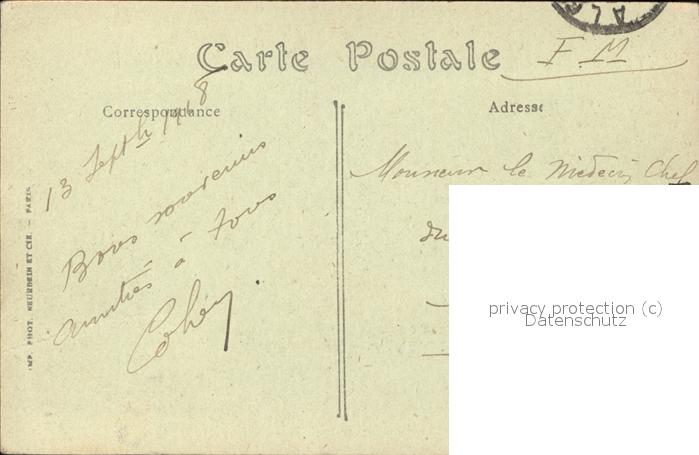 Carte Postale
F. M
Correspondance
Adresse
13 Septb 1918
Bons souvenirs
amitiés à tous
Monsieur le Médecin Chef
du
IMP. PHOT. NEURDEIN ET CIE. — PARIS.
privacy protection (c)
Datenschutz